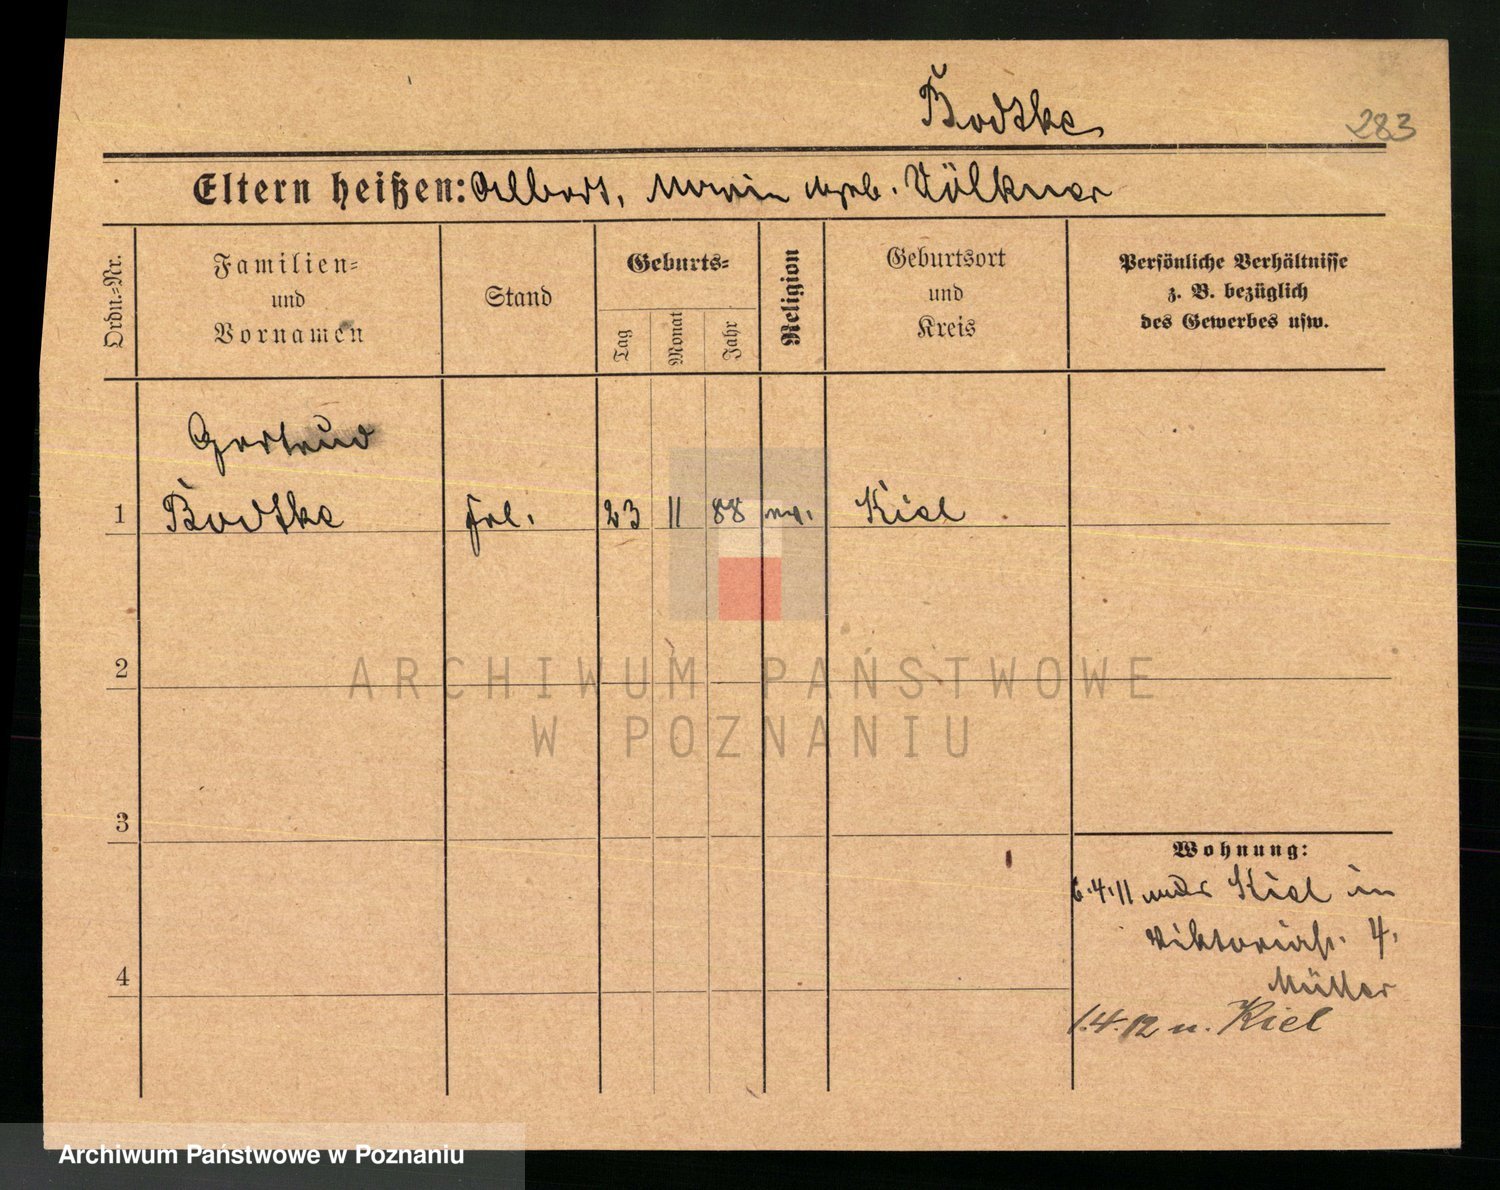 Bodtke
283
Eltern heißen: Albert, Maria geb. Völkner
Ordn.-Nr.
Familien-
und
Vornamen
Stand
Geburts-
Tag
Monat
Jahr
Religion
Geburtsort
und
Kreis
Persönliche Verhältnisse
z. B. bezüglich
des Gewerbes usw.
Gertrud
1 Bodtke Frl. 23 11 88 ev. Kiel
2
3
4
Wohnung:
6.4.11 aus Kiel in
Viktoriastr. 4.
Müller
1.4.12 n. Kiel
ARCHIWUM PAŃSTWOWE
W POZNANIU
Archiwum Państwowe w Poznaniu